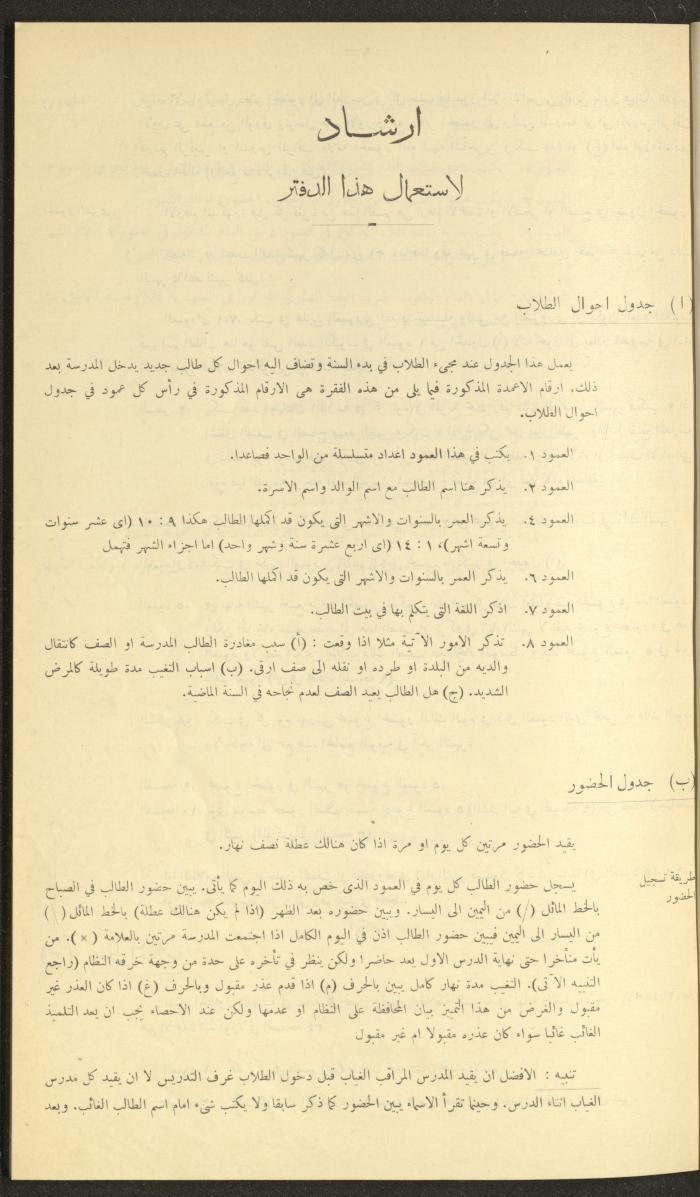 ارشاد
لاستعمال هذا الدفتر
(ا) جدول احوال الطلاب
يعمل هذا الجدول عند مجىء الطلاب في بدء السنة وتضاف اليه احوال كل طالب جديد يدخل المدرسة بعد
ذلك. ارقام الاعمدة المذكورة فيما يلي من هذه الفقرة هى الارقام المذكورة في رأس كل عمود في جدول
احوال الطلاب.
العمود ١. يكتب في هذا العمود اعداد متسلسلة من الواحد فصاعدا.
العمود ٢. يذكر هنا اسم الطالب مع اسم الوالد واسم الاسرة.
العمود ٤. يذكر العمر بالسنوات والاشهر التى يكون قد اكملها الطالب هكذا ٩ : ١٠ (اى عشر سنوات
وتسعة اشهر)، ١ : ١٤ (اى اربع عشرة سنة وشهر واحد) اما اجزاء الشهر فتهمل
العمود ٦. يذكر العمر بالسنوات والاشهر التى يكون قد اكملها الطالب.
العمود ٧. اذكر اللغة التى يتكلم بها في بيت الطالب.
العمود ٨. تذكر الامور الآتية مثلا اذا وقعت : (أ) سبب مغادرة الطالب المدرسة او الصف كانتقال
والديه من البلدة او طرده او نقله الى صف ارقى. (ب) اسباب التغيب مدة طويلة كالمرض
الشديد. (ج) هل الطالب يعيد الصف لعدم نجاحه في السنة الماضية.
(ب) جدول الحضور
يقيد الحضور مرتين كل يوم او مرة اذا كان هنالك عطلة نصف نهار.
طريقة تسجيل
الحضور
يسجل حضور الطالب كل يوم في العمود الذى خص به ذلك اليوم كما يأتى. يبين حضور الطالب في الصباح
بالخط المائل (/) من اليمين الى اليسار. ويبين حضوره بعد الظهر (اذا لم يكن هنالك عطلة) بالخط المائل (\)
من اليسار الى اليمين فيبين حضور الطالب اذن في اليوم الكامل اذا اجتمعت المدرسة مرتين بالعلامة (×). من
يأت متأخرا حتى نهاية الدرس الاول يعد حاضرا ولكن ينظر في تأخره على حدة من وجهة خرقه النظام (راجع
التنبيه الآتى). التغيب مدة نهار كامل يبين بالحرف (م) اذا قدم عذر مقبول وبالحرف (غ) اذا كان العذر غير
مقبول والغرض من هذا التمييز بيان المحافظة على النظام او عدمها ولكن عند الاحصاء يجب ان يعد التلميذ
الغائب غائبا سواء كان عذره مقبولا ام غير مقبول
تنبيه : الافضل ان يقيد المدرس المراقب الغياب قبل دخول الطلاب غرف التدريس لا ان يقيد كل مدرس
الغياب اثناء الدرس. وحينما تقرأ الاسماء يبين الحضور كما ذكر سابقا ولا يكتب شىء امام اسم الطالب الغائب. وبعد